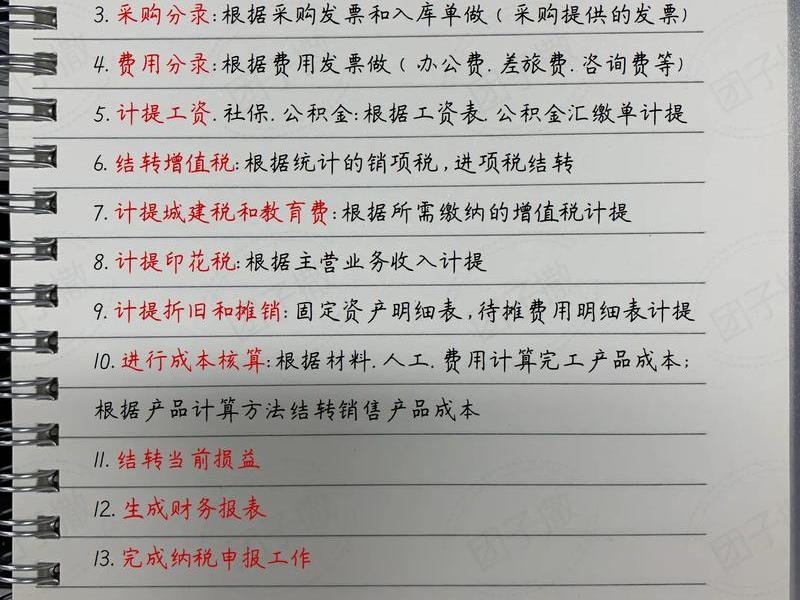 3. 采购分录:根据采购发票和入库单做(采购提供的发票)
4. 费用分录:根据费用发票做(办公费.差旅费.咨询费等)
5. 计提工资.社保.公积金:根据工资表.公积金汇缴单计提
6. 结转增值税:根据统计的销项税,进项税结转
7. 计提城建税和教育费:根据所需缴纳的增值税计提
8. 计提印花税:根据主营业务收入计提
9. 计提折旧和摊销:固定资产明细表,待摊费用明细表计提
10. 进行成本核算:根据材料.人工.费用计算完工产品成本;
根据产品计算方法结转销售产品成本
11. 结转当前损益
12. 生成财务报表
13. 完成纳税申报工作